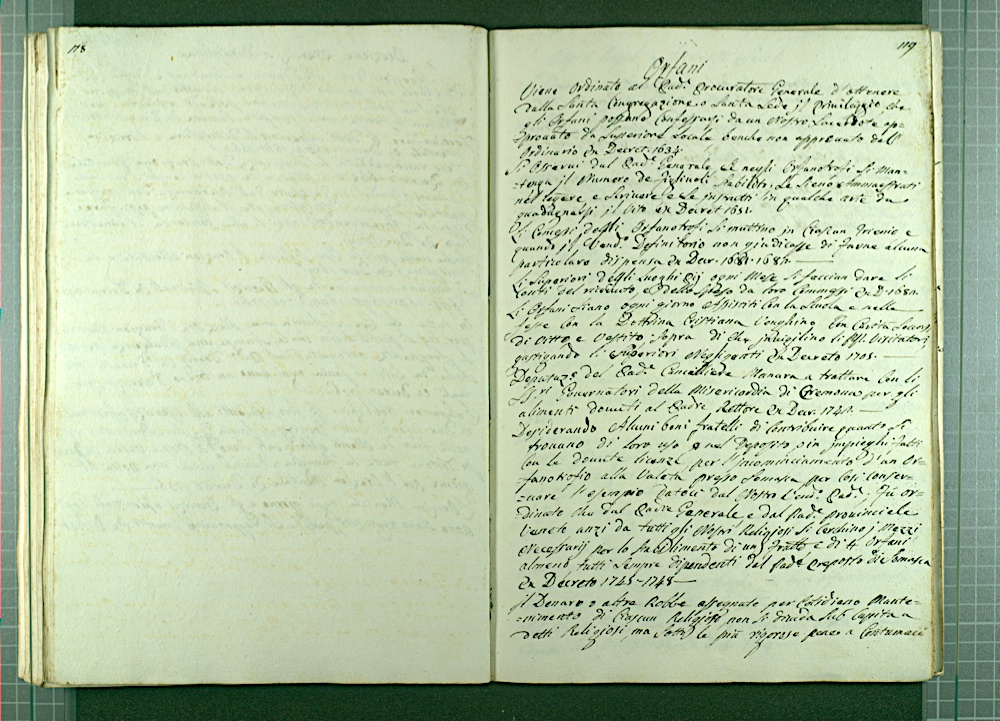 118
119
Orfani
Viene Ordinato al Pad.e Procuratore Generale d'ottenere
dalla Santa Congregazione, o Santa Sede il Privileggio che
gli Orfani possano Confessarsi da un Nostro Sacerdote ap=
=provato da Superiore Locale benche non approvato dall'
Ordinario Ex Decret. 1634.
Si Osservi dal Pad.e Generale, che negli Orfanotrofj Si Man=
=tenga il Numero de Figliuoli Stabilito, Le Sieno Ammaestrati
nel legere, e Scrivere, e Le instrutti in qualche arte da
guadagnarsi il Vito Ex Decret 1651.
Li Comessi degli Orfanotrofj Si muttino in Ciascun Trienio e
quando il Vend.o Definitorio non giudicasse di farne alcuna
particolare dispensa Ex Decr. 1681. 1686.
Li Superiori degli Luoghi Pij ogni Mese Si faccian dare li
Conti del ricevuto, e dello Speso da loro Commessi Ex D. 1680.
Li Orfani Siano ogni giorno Assistiti Con la Scuola e nelle
feste Con la Dottrina Cristiana Venghino Con Carita Soccorsi
di Vitto, e Vestito; Sopra di che invigilino li PP. Visitatori
gastigando li Superiori Negligenti Ex Decreto 1705.
Deputaz.e del Pad.e Cancelliere Manara a trattare Con li
SS.ri Governatori della Misericordia di Cremona per gli
alimenti dovuti al Padre Rettore Ex Decr. 1741.
Desiderando Alcuni boni fratelli di Contribuire quanto Si
trovano di loro uso, o nel Deposito, o in impieghi fatti
Con le dovute licenze per l'Incominciamento d'un Or=
=fanotrofio alla Valeta presso Somasca per Cosi Conser=
=vare l'esempio Datoci dal Nostro Vend. Pad.e Fu or=
dinato che dal Padre Generale e dal Pad.e Provinciale
Veneto anzi da tutti gli Nostri Religiosi Si Cerchino i Mezzi
Necessarij per lo Stabilimento di un Fratte e di 4 Orfani
almeno tutti Sempre dipendenti dal Pad.e Preposto di Somasca
Ex Decreto 1745-1748
Il Denaro o altre Robbe assegnate per Cotidiano Mante=
=nimento di Ciascun Religioso non Si divida Sub Capita a
detti Religiosi, ma Sotto le più rigorose pene a Contumaci